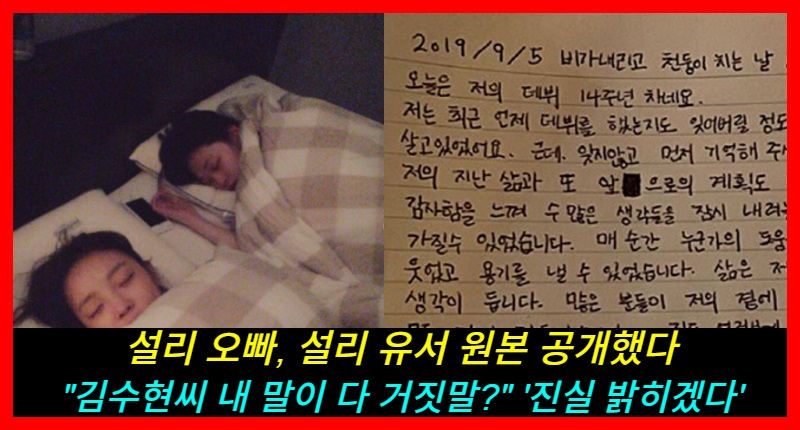 2019/9/5 비가내리고 천둥이 치는 날
오늘은 저의 데뷔 14주년 차네요.
저는 최근 언제 데뷔를 했는지도 잊어버릴 정도
살고있었어요. 근데. 잊지않고 먼저 기억해 주
저의 지난 삶과 또 앞으로의 계획도
감사함을 느껴 수많은 생각들을 잠시 내려
가질수 있었습니다. 매 순간 누군가의 도움
웃었고 용기를 낼 수 있었습니다. 삶은 저
생각이 듭니다. 많은 분들이 저의 곁에
설리 오빠, 설리 유서 원본 공개했다
"김수현씨 내 말이 다 거짓말?" '진실 밝히겠다'